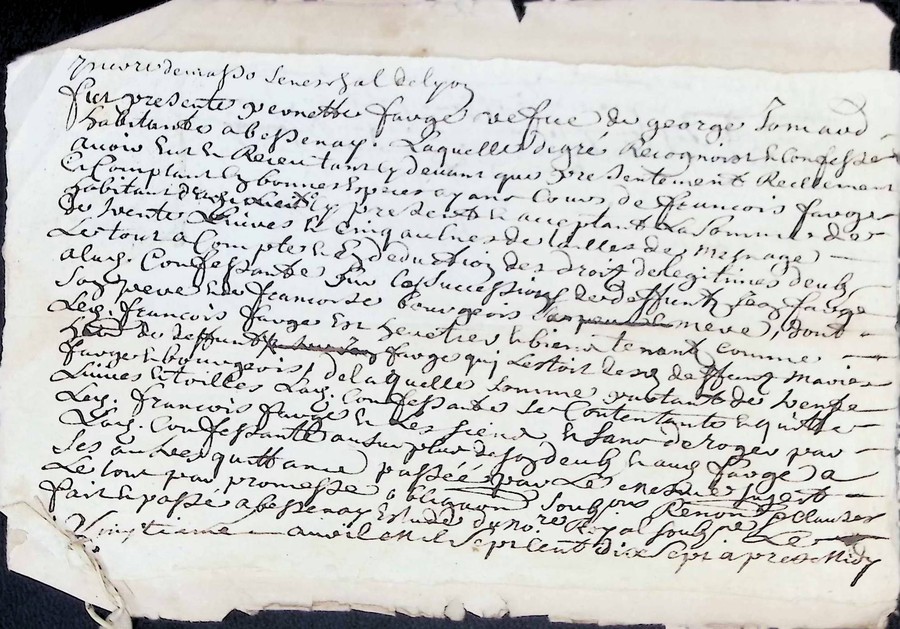 senechal de lyon
fut presente pernette farge vefue de george Tomaud
habitante a bessenay. Laquelle de gré Recognoist & Confesse
avoir eut & Receu tant cy devant que presentement Reellement
& Comptant en bonnes especes ayant Cours de francois farge
habitant cy present & acceptant La Somme de
de vente Livres & cinq aulnes de toilles de mesnage
Le tout a Compte & En deduction des droits de legitimes deub
a lad. Confessante Sur les successions de deffunts farge
Son pere & francoise bourgeois mere, dont
Led. francois farge Est heretier & bien tenant comme
de deffunt farge qui Lestoit des deffuncts
farge & bourgeois, de laquelle somme restant de vente
Livres & toilles Lad. Confessante Se Contente & quitte
Led. francois farge & Les siens & sans deroger par
Lad. Confessante au surplus de son deub & aud. farge a
Ses autres quittance passées par Le
Le tout par promesse obligaon Soubzons Renons & Clauses
fait & passé a bessenay Estude du nore Royal Soubsne Le
Vingtieme avril Mil Sept Cent dix Sept apres Midy